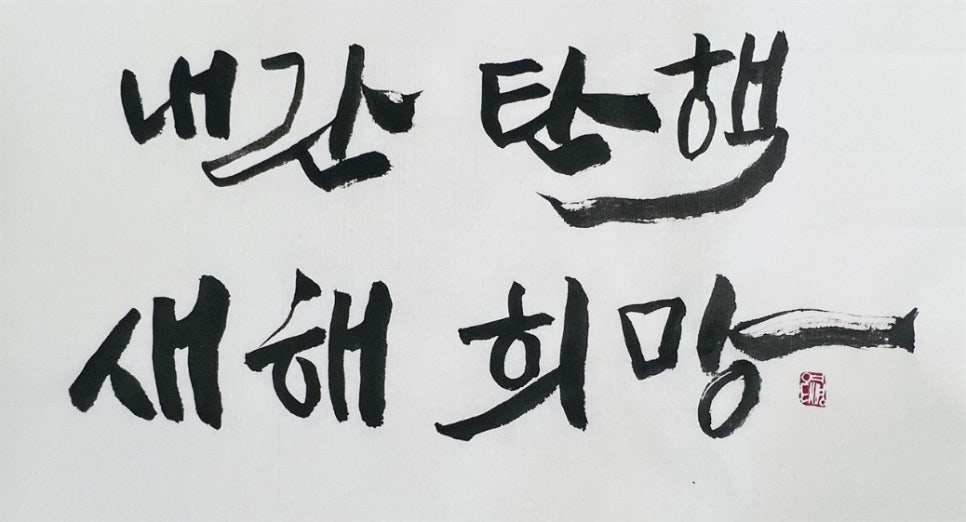 내란 탄핵
새해 희망